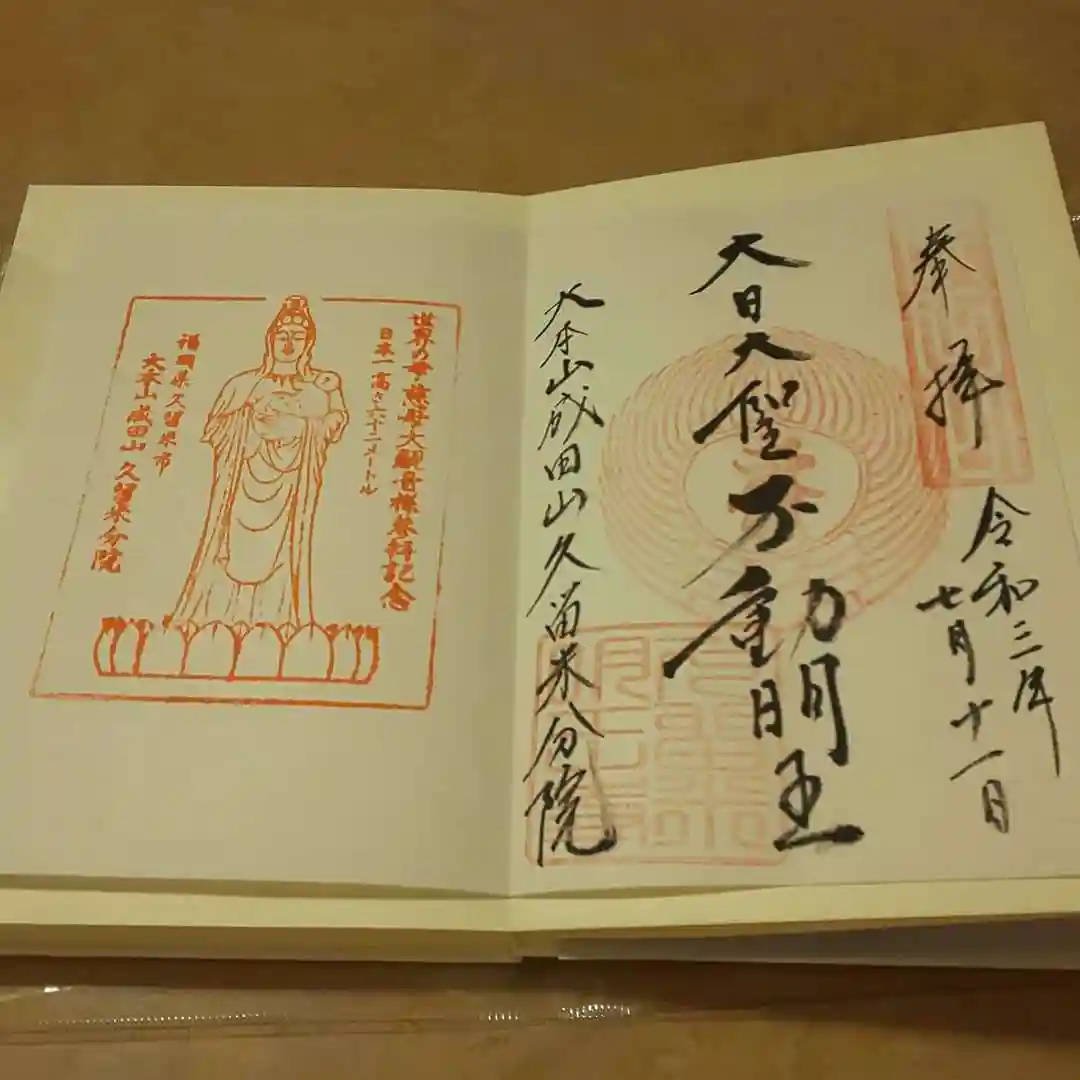 奉拝
令和三年
七月十一日
大日大聖不動明王
大本山成田山久留米分院
世界の母・慈母大観音様参拝記念
日本一高さ六十二メートル
福岡県久留米市
大本山成田山久留米分院